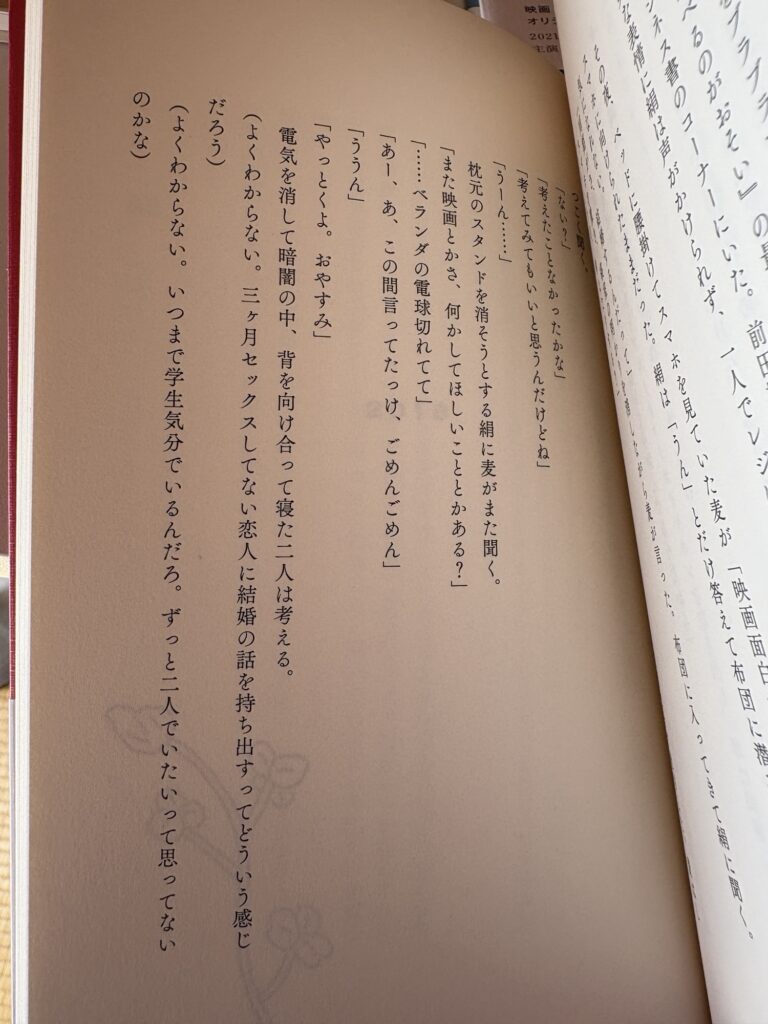 映画
オリジ
2021
主演
ブラブラ
べるのがおそい』の最
前田
ネス書のコーナーにいた。
な表情に絹は声がかけられず、一人でレジ
その夜、ベッドに腰掛けてスマホを見ていた麦が「映画面白
スマホに向けられたままだった。絹は「うん」とだけ答えて布団に潜
麦が言った。布団に入ってきて絹に聞く。
つこく聞く。
「ない?」
「考えたことなかったかな」
「考えてみてもいいと思うんだけどね」
「うーん……」
枕元のスタンドを消そうとする絹に麦がまた聞く。
「また映画とかさ、何かしてほしいこととかある?」
「……ベランダの電球切れてて」
「あー、あ、この間言ってたっけ、ごめんごめん」
「ううん」
「やっとくよ。おやすみ」
電気を消して暗闇の中、背を向け合って寝た二人は考える。
(よくわからない。三ヶ月セックスしてない恋人に結婚の話を持ち出すってどういう感じ
だろう)
(よくわからない。いつまで学生気分でいるんだろ。ずっと二人でいたいって思ってない
のかな)